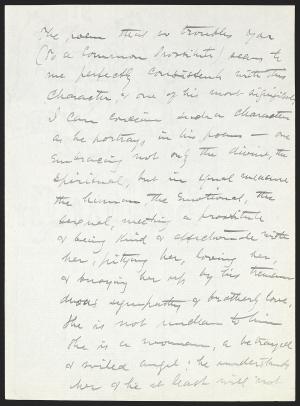 The poem that so troubles you
(To a Common Prostitute) seems to
me perfectly consistent with this
character, & one of his most significant,
I can conceive such a character
as he portrays in his poems — one
embracing not only the divine, the
spiritual, but in equal measure
the human the emotional, the
sexual, meeting a prostitute
& being kind & affectionate with
her, pitying her, loving her,
& buoying her up by his tremen
dous sympathy & brotherly love.
She is not unclean to him
She is a woman, a betrayed
& soiled angel; he understands
her & he at least will not